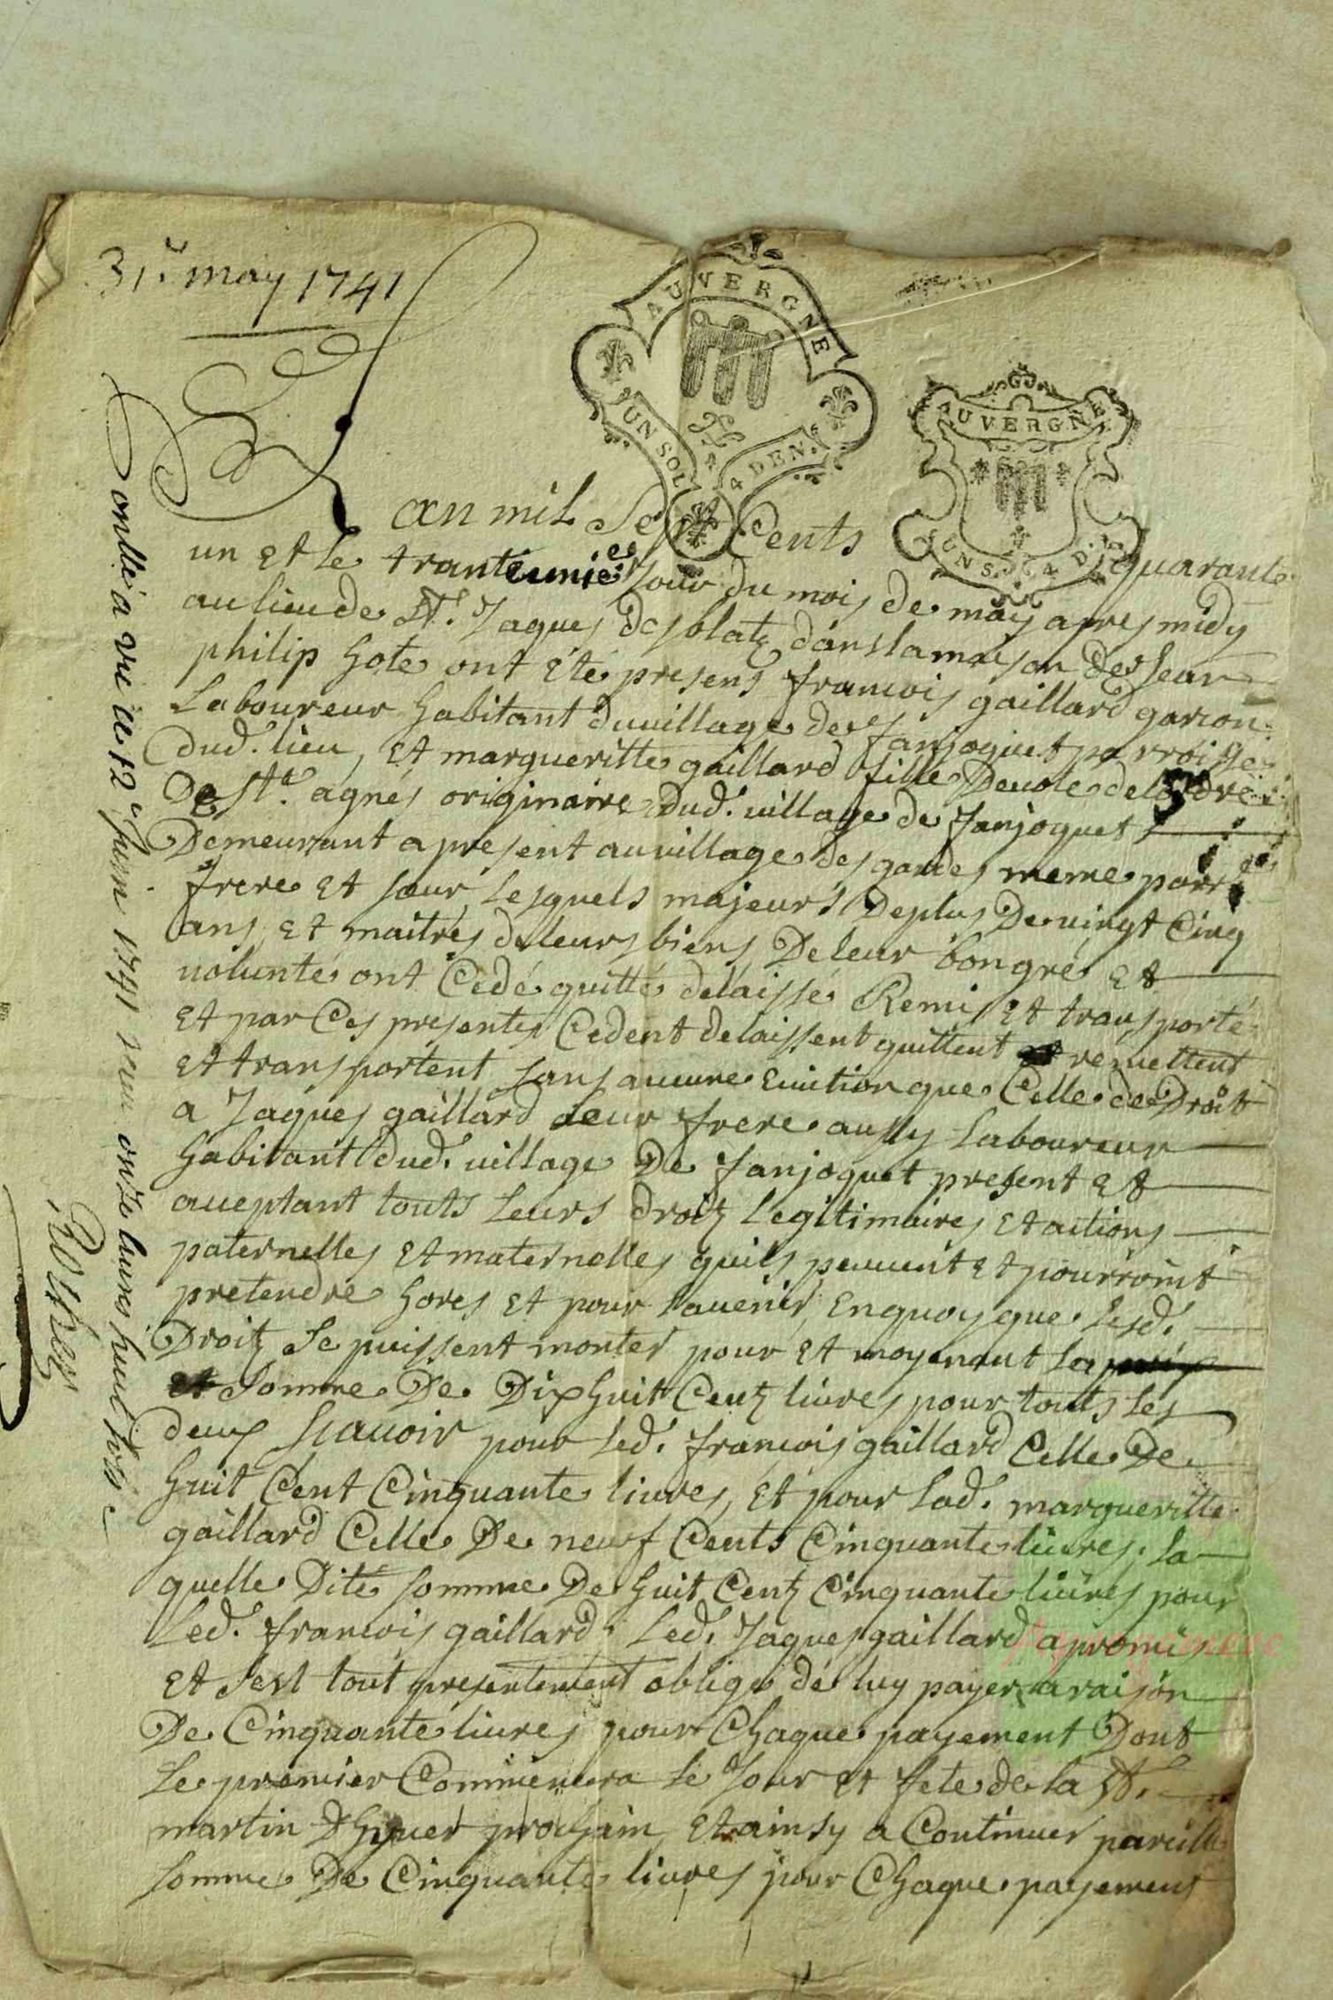 31e may 1741
AUVERGNE
UN SOL 4 DEN.
AUVERGNE
UN S. 4 D.
L'an mil Sept Cents quarante
un et le tranteunie Jour du mois de may apres midy
au lieu de St. Jaques des blatz dans la maison de Jean
philip hote ont été presens francois gaillard garcon
Laboureur habitant du village de fanjoquet parroisse
dud. lieu, et margueritte gaillard fille
De Ste. agnés originaire dud. village de fanjoquet
Demeurant a present au village des gardes meme parr
frere et sœur, Lesquels majeurs De plus De vingt Cinq
ans, et maitres de leurs biens, De leur bongré et
volunté ont Cedé quitté delaissé Remis et transporté
et par Ces presentes Cedent delaissent quittent remettent
et transportent sans aucune evition que Celle de Droit
a Jaques gaillard leur frere aussy Laboureur
habitant dud. village De fanjoquet present et
acceptant touts Leurs droitz Legitimaires et actions
paternelles et maternelles quils peuvent et pourroint
pretendre hores et pour lavenir, En quoy que Lesd.
Droitz Se puissent monter pour et moyenant La
Somme De Dix huit Centz livres pour touts les
deux Scavoir pour Led. francois gaillard Celle De
huit Cent Cinquante livres, et pour Lad. margueritte
gaillard Celle De neuf Cents Cinquante livres, La
quelle Dite somme De huit Centz Cinquante livres pour
Led. francois gaillard Led. Jaques gaillard a promis
et s'est tout presentement obligé de luy payer a raison
De Cinquante livres pour Chaque payement Dont
Le premier Commencera le Jour et fete de la St.
martin D'hyver prochain, et ainsy a Continuer pareille
Somme De Cinquante livres pour Chaque payement
onllé a vic le 12e juin 1741 onze livres huit sols